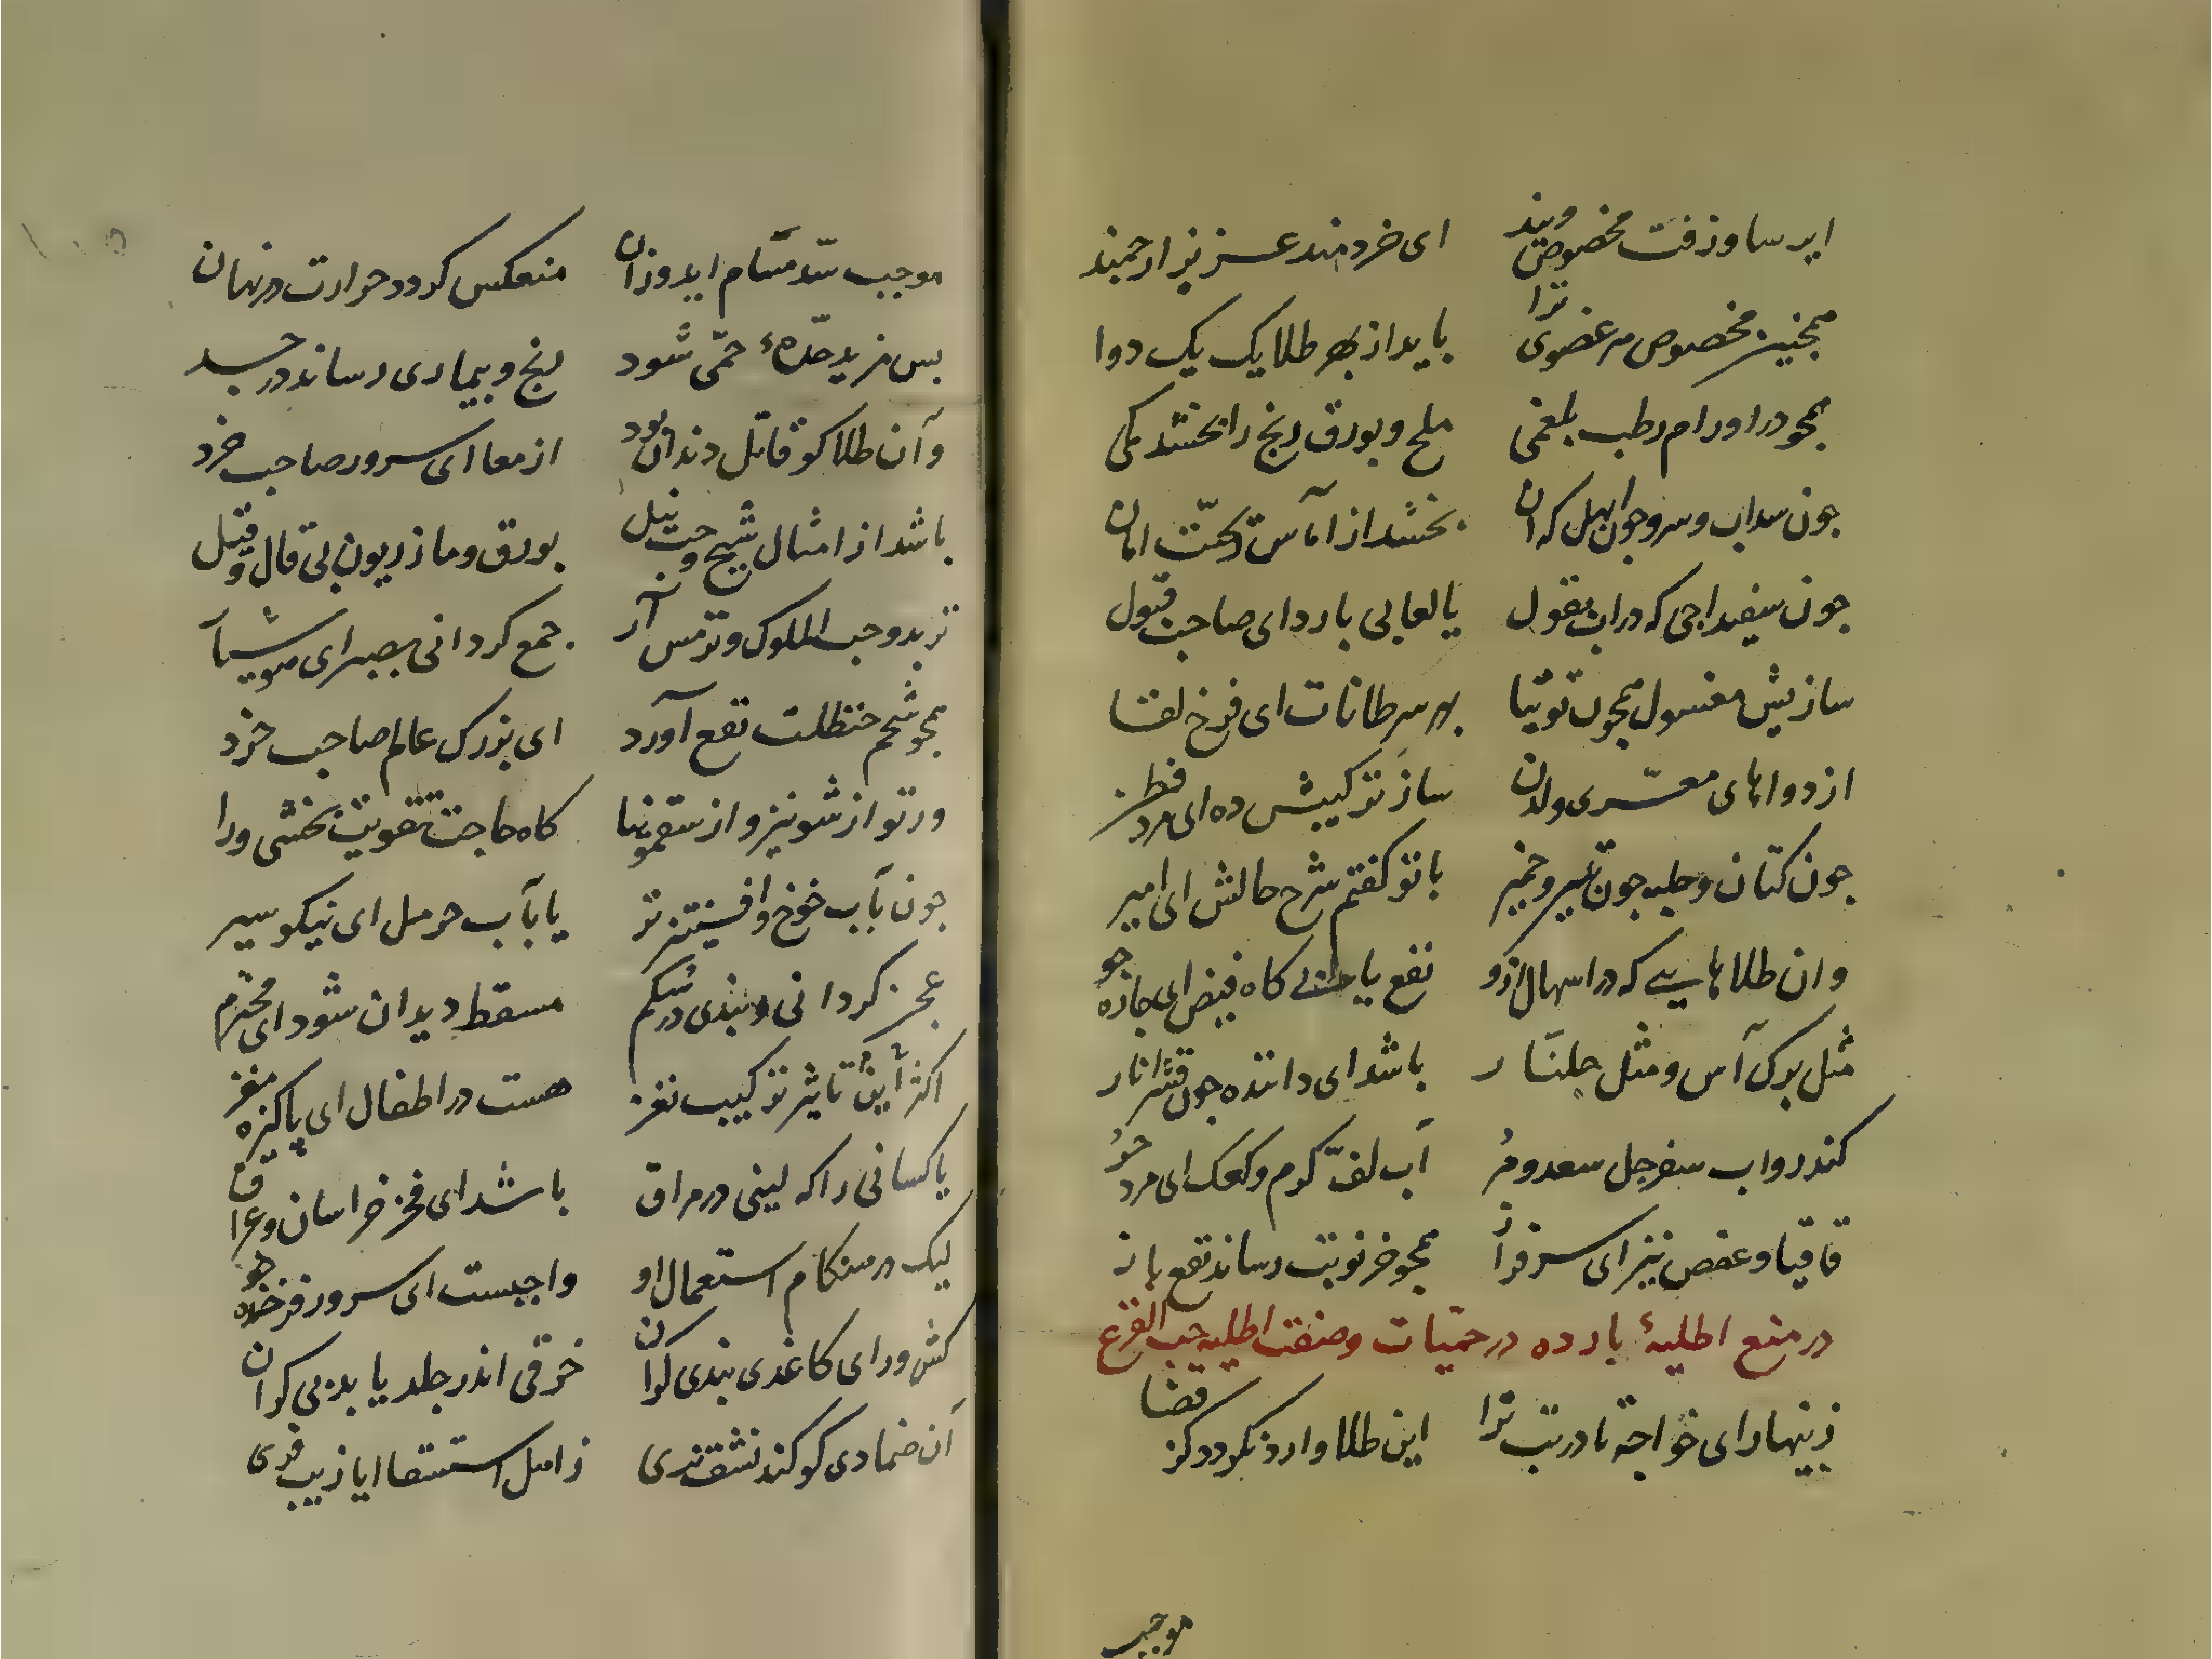 ایرسا و زفت مخصوص ویند ای خردمند عزیز ارجمند
همچنین مخصوص هر عضوی ترا باید از بهر طلا یک یک دوا
همچو در اورام رطب بلغمی ملح و بورق رنج را بخشد کمی
جون سداب و سرو جوان ابهل که آن بخشد از آماس تحت امان
جون سفیداجی که در آب بقول یا لعابی بارد ای صاحب قبول
سازیش مغسول همجون توتیا بهر سرطانات ای فرخ لقا
از دواهای مغری ولدن ساز ترکیبش ده ای مرد فطن
جون کتان و حلبه جون تین و خمیر با تو کفتم شرح حالش ای امیر
وان طلاهایی که در اسهال ازو نفع یابند کاه قبض ای جاره جو
مثل برک آس و مثل جلنار باشد ای داننده جون قشر انار
کندر و اب سفرجل سعد و مر آب لف کرم و کعک ای مرد حر
قاقیا و عفص نیز ای سرفراز همجو خرنوبت رساند نفع باز
در منع اطلیهٔ بارده در حمیات و صفت اطلیه حب القرع
زینهار ای خواجه تا در تب ترا این طلا وارد نکردد کز قضا
موجب
موجب سد مسام اید وزان منعکس کردد حرارت در نهان
بس مزید حدهٔ حمی شود رنج و بیماری رساند در جسد
وآن طلا کو قاتل دندان بود از معا ای سرور صاحب خرد
باشد از امثال شیح و حب نیل بورق و مازریون بی قال و قیل
تربد و حب الملوک و ترمس آر جمع کردانی بصبر ای هوشیار
همجو شحم حنظلت نفع آورد ای بزرک عالم صاحب خرد
ور تو از شونیز و از سقمونیا کاه حاجت تقویت بخشی ورا
جون بآب خوخ و افسنتین تر یا بآب حرمل ای نیکو سیر
عجن کردانی و بندی در شکم مسقط دیدان شود ای محترم
اکثر این تاثیر ترکیب نغز هست در اطفال ای پاکیزه مغز
یا کسانی را که لینی در مراق باشد ای فخر خراسان و عراق
لیک در هنکام استعمال او واجبست ای سرور فرخنده خو
کش ورای کاغذی بندی کران خرقی اندر جلد یابد بی کران
آن ضمادی کو کند نشف تری ز اهل استسقا ایا زیب فری